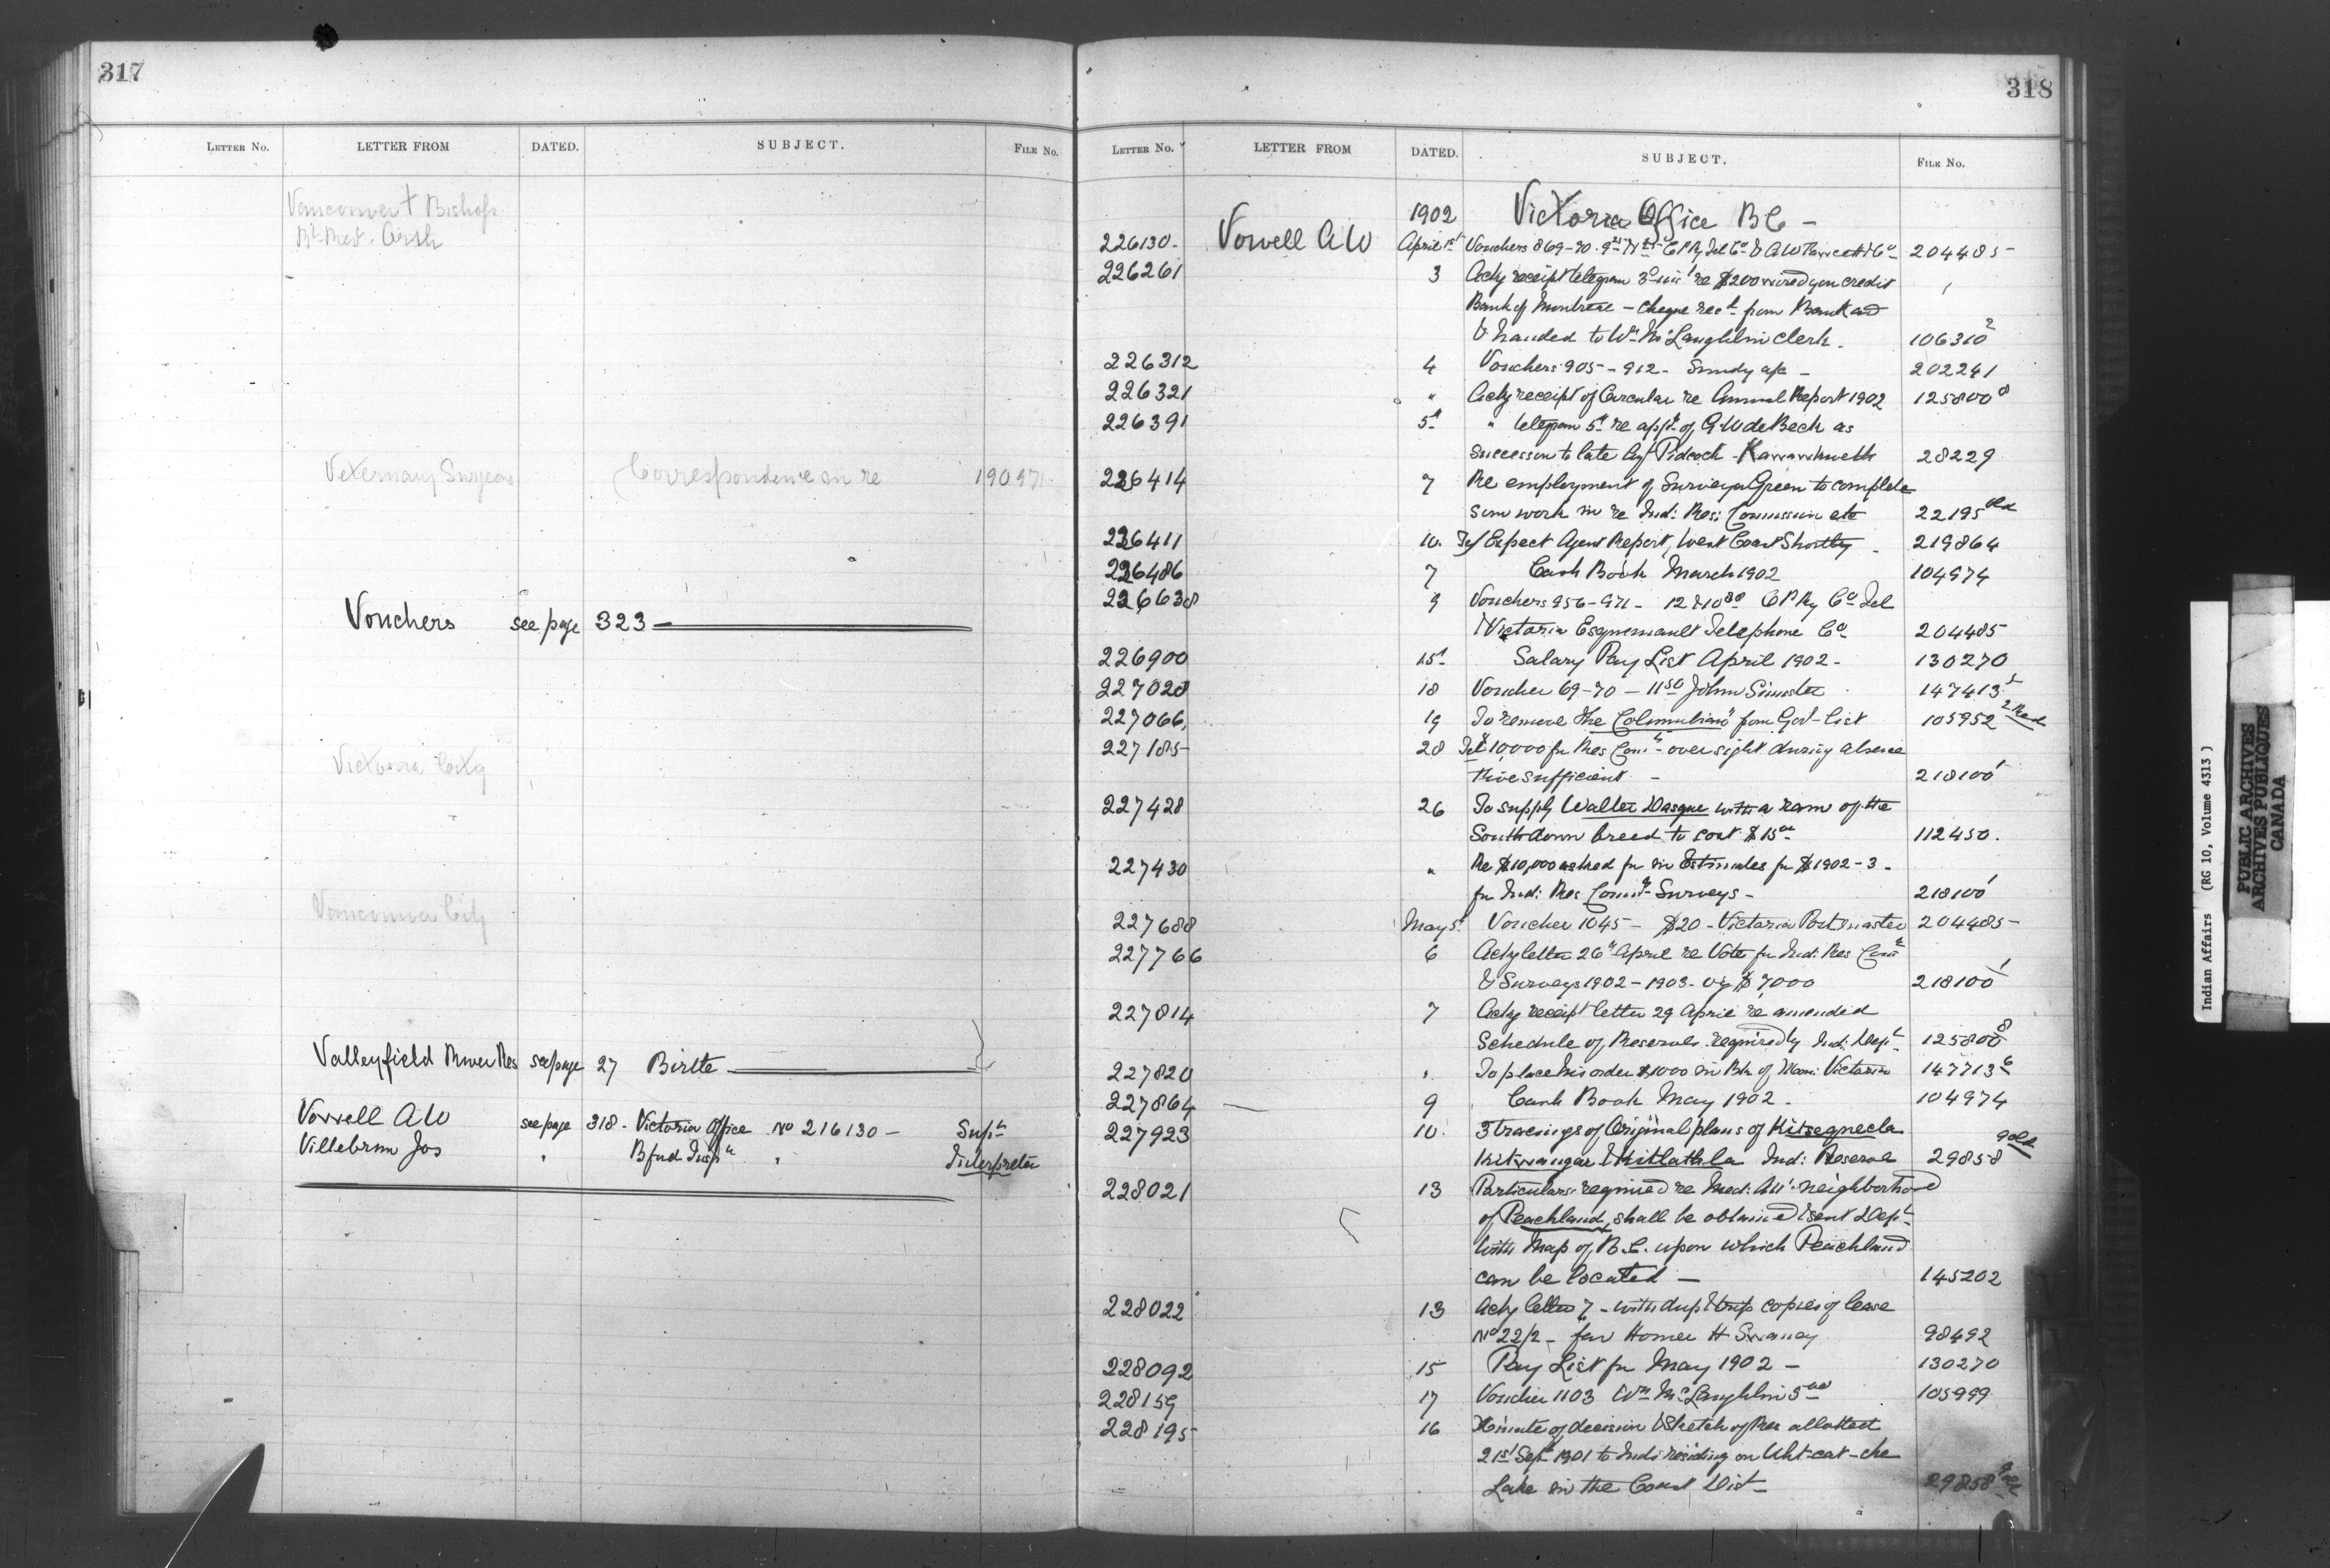 317
LETTER No. LETTER FROM DATED. SUBJECT. FILE No.
Vancouver Bishop
Rt. Revd.
Veternary Surgeon Correspondence in re 190971
Vouchers see page 323
Victoria City
Vancouver City
Valleyfield River Res see page 27 Birtle
Vowell A W see page 318 - Victoria Office No 216130 - Supt
Villebrun Jos " Bfud Insp " Interpreter
318
LETTER No. LETTER FROM DATED. SUBJECT. FILE No.
1902 Victoria Office B C -
226130- Vowell A W April 1st Vouchers 869-70 - C P Ry Tel Co & A W 204485
226261 3 Ackg receipt telegram re $200 wired you credit
Bank of Montreal - Cheque rect from Bank and
& handed to Wm McLaughlin Clerk. 106310 2
226312 4 Vouchers 905 - 912 - Sundy a/c - 202241
226321 " Ackg receipt of Circular re Annual Report 1902 125800 8
226391 5th " telegram 5th re appt of G. W de Beck as
successor to late Agt Pidcock - 28229
226414 7 Re employment of Surveyor Green to complete
work in re Ind: Res: Commission etc 22195
226411 10. Tel Expect Agent Report, West Coast Shortly - 219864
226486 7 Cash Book March 1902 104974
226638 9 Vouchers 956-971 - C P Ry Co Tel
& Victoria Esquemault Telephone Co 204485
226900 15th Salary Pay List April 1902 - 130270
227028 18 Voucher 69-70 - 11 50 John 147413
227066, 19 To remove the "Columbian" from Govt list 105952 2 Red
227185 28 Tel $10,000 for Res Comn - oversight during absence
sufficient - 218100 1
227428 26 To supply Walter with a ram of the
Southdown breed to cost $15 00 112450.
227430 " Re $10,000 asked for in Estimates for $1902-3 -
for Ind: Res Comn Surveys - 218100 1
227688 May 5. Voucher 1045 - $20 - Victoria Postmaster 204485
227766 6 Ackg letter 26th April re Vote for Ind: Res Comn
& Surveys 1902-1903 - $7000 218100 1
227814 7 Ackg receipt letter 29 April re amended
Schedule of Reserves required by Ind: Dept 125800 8
227820 " To place his order $1000 in Bk of Mon: Victoria 147713 6
227864 9 Cash Book May 1902 - 104974
227923 10. 3 tracings of Original plans of Kitsequecla
Kitwangar & Kitlathla Ind: Reserve 29858 9
228021 13 Particulars required re Med: Att. neighborhood
of Peachland, shall be obtained & sent Dept
with Map of B.C. upon which Peachland
can be located - 145202
228022 13 Ackg letter 7 - with dup & trip copies of lease
No 22/2 - for Homer H Swaney 98492
228092 15 Pay List for May 1902 - 130270
228159 17 Voucher 1103 Wm McLaughlin 5 00 105999
228195 16 Minute of decision & Sketch of Res allotted
21st Sept 1901 to Inds residing on Uht-cat-che
Lake in the Coast Dist - 29858 9
Indian Affairs (RG 10, Volume 4313 )
PUBLIC ARCHIVES
ARCHIVES PUBLIQUES
CANADA